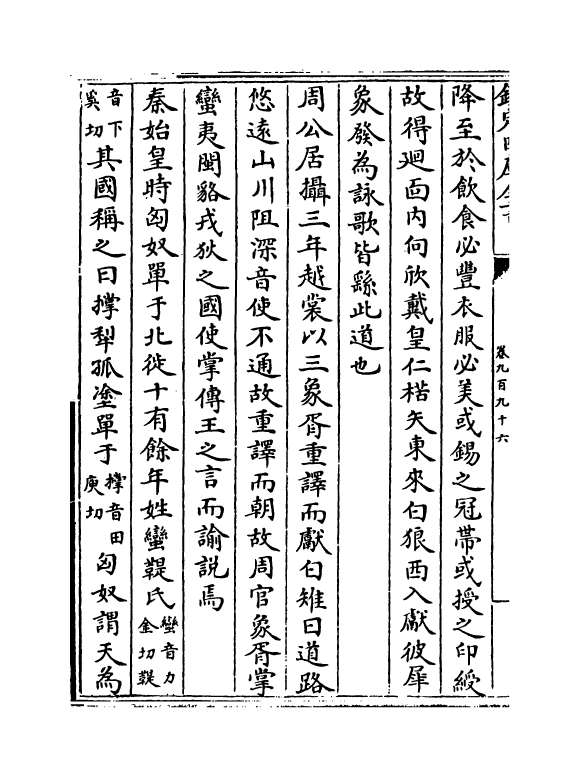 欽定四庫全書
卷九百九十六
降至於飲食必豐衣服必美或錫之冠帶或授之印綬
故得廻面内向欣戴皇仁楛矢東來白狼西入獻彼犀
象發為詠歌皆繇此道也
周公居攝三年越裳以三象胥重譯而獻白雉曰道路
悠遠山川阻深音使不通故重譯而朝故周官象胥掌
蠻夷閩貉戎狄之國使掌傳王之言而諭説焉
秦始皇時匈奴單于北徙十有餘年姓蠻鞮氏蠻音力
金切鞮
音下
奚切其國稱之曰撑犁孤塗單于撑音田
庚切匈奴謂天為